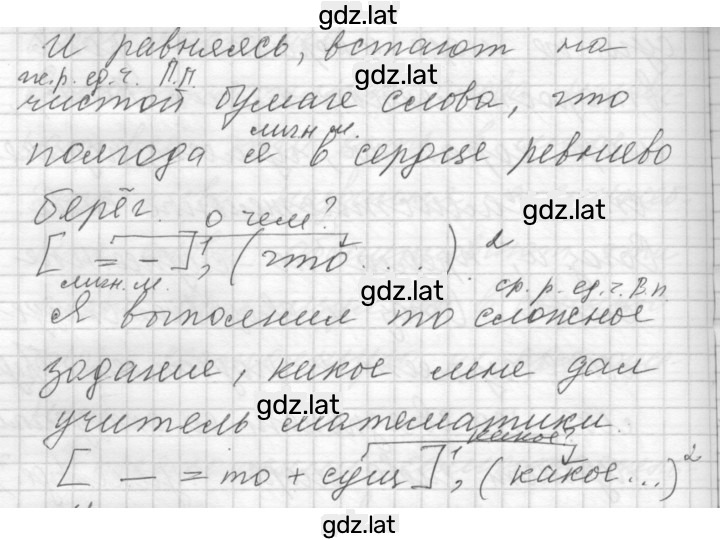 gdz.lat
И равняясь, встают на
gdz.lat
ж.р. ед.ч. П.п.
чистой бумаге слова, что
личн. м.
полгода я в сердце ревниво
берёг. о чем?
gdz.lat
[ = – ]¹, (что....)²
gdz.lat
личн. м. ср. р. ед. ч. В.п.
Я выполнил то сложное
задание, какое мне дал
gdz.lat
учитель математики.
какое?
[ — = то + сущ ]¹, (какое...)²
gdz.lat